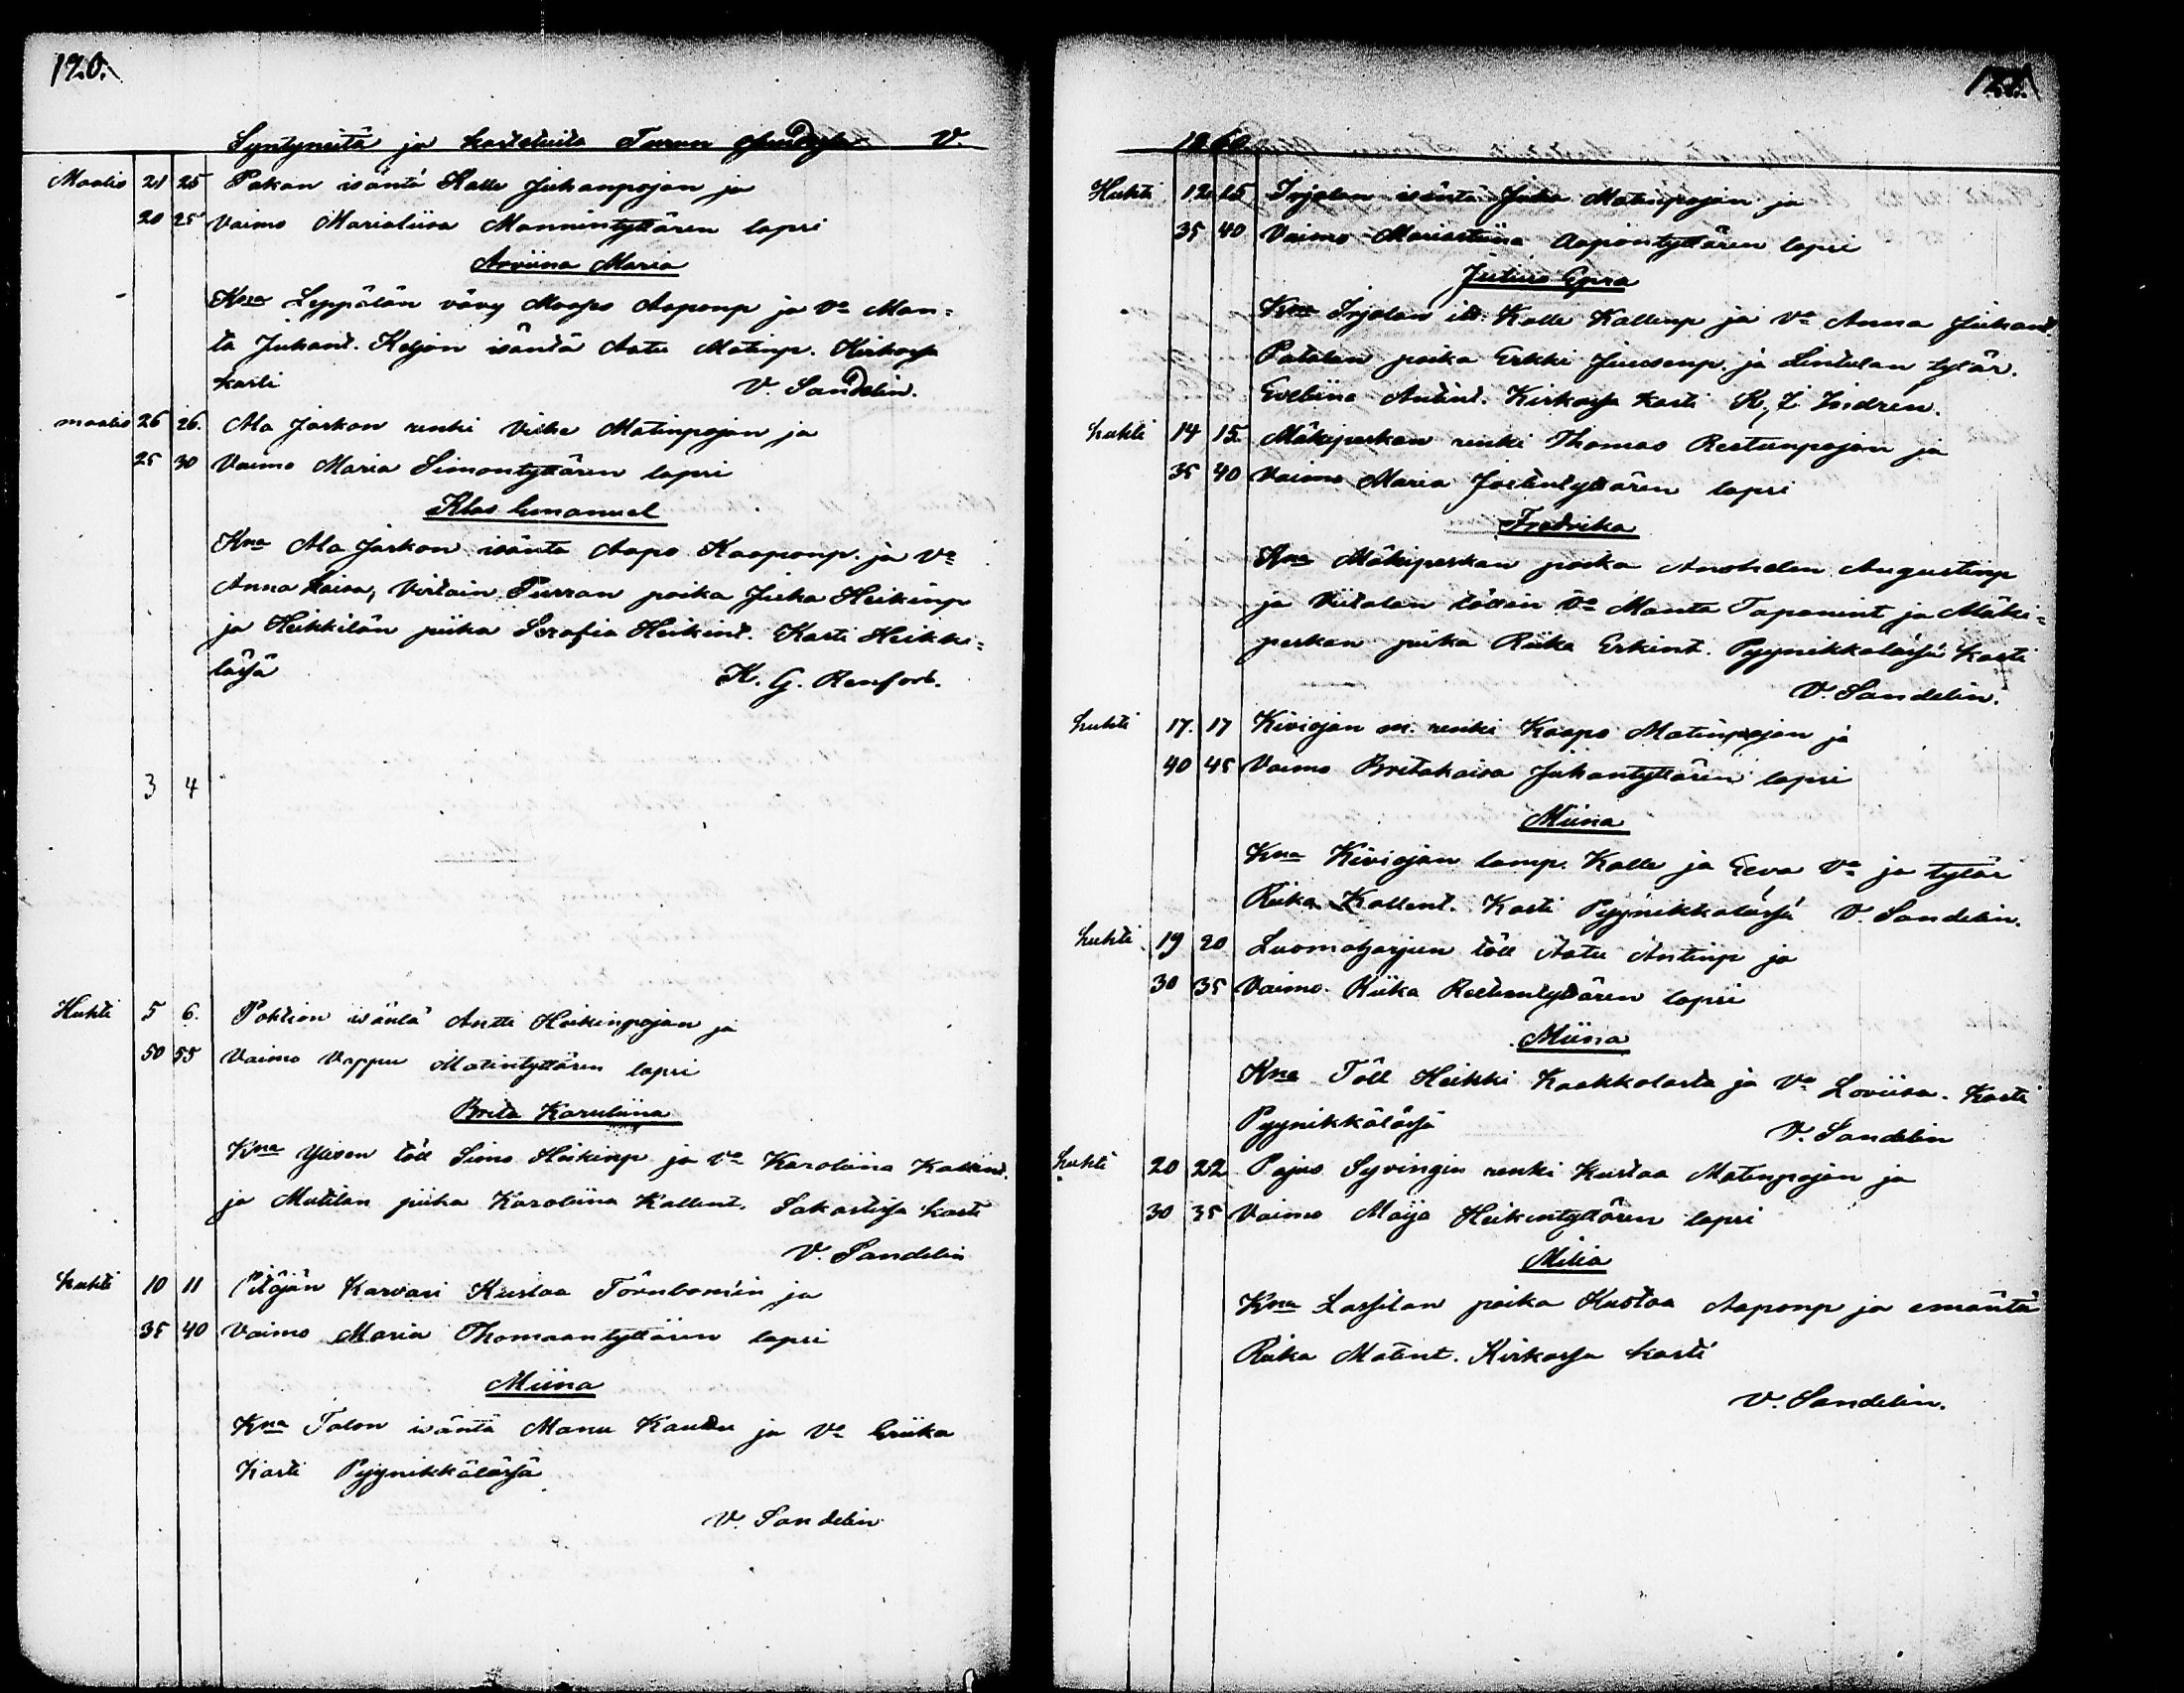 120.
Syntyneitä ja kasteluita Turun V.
Maalis 21 25 Pakan isäntä Kalle Juhanpojan ja
20 25 Vaimo Marialiisa Mannintyttären lapsi
Arviina Maria
Kna Leppälän vävy Maapo Aaponp ja Va Man=
ta Juhant. Keljon isäntä Aatu Matinp. Kirkossa
kasti V. Sandelin.
maalis 26 26. Ala Jaskan renki Matinpojan ja
25 30 Vaimo Maria Simontyttären lapsi
Klas Emanuel
Kna Ala Jaskan isäntä Aapo Kaaponp. ja Va
Anna Kaisa, Turran poika Juha Heikinp
ja Heikkilän piika Serafia Heikint. Kasti Heikki=
lässä K. G. Renfors.
3 4
Huhti 5 6. Pohtion isäntä Antti Heikinpojan ja
50 55 Vaimo Vappu Matintyttären lapsi
Brita Karuliina
Kna töll Simo Heikinp ja Va Karoliina Kallent.
ja Matilan piika Karoliina Kallent. kasti
V. Sandelin
huhti 10 11 Pitäjän Karvari Kustaa Törnbomin ja
35 40 Vaimo Maria Thomaantyttären lapsi
Miina
Kna Talon isäntä Manu ja Va Eriika
Kasti Pyynikkälässä
V. Sandelin
121.
1860.
Huhti 12 15 Irjalan isäntä Juha Matinpojan ja
35 40 Vaimo Mariastiina Aapontyttären lapsi
Julius Epra
Kna Irjalan Kalle Kallenp ja Va Anna Juhant.
Patalan poika Erkki Juusonp. ja Lintulan tytär.
Eveliina Antint. Kirkossa kasti K. J. Isidren.
huhti 14 15. Mäkipeskan renki Thomas Restunpojan ja
35 40 Vaimo Maria tyttären lapsi
Fredrika
Kna Mäkipeskan poika Augustinp
ja Viitalan töllin Va Manta Tapanint ja Mäki=
peskan piika Riika Erkint. Pyynikkälässä kasti
V. Sandelin.
huhti 17. 17 Kiviojan m. renki Kaapo Matinpojan ja
40 45 Vaimo Britakaisa Juhantyttären lapsi
Miina
Kna Kiviojan lamp. Kalle ja Eeva Va ja tytär
Riika Kallent. Kasti Pyynikkälässä V. Sandelin.
huhti 19 20 Luomaharjun töll Aatu Antinp ja
30 35 Vaimo Riika Restuntyttären lapsi
Miina
Kna Töll Heikki Kaakkolasta ja Va Loviisa. Kasti
Pyynikkälässä V. Sandelin
huhti 20 22 Pajus Syvingin renki Kustaa Matinpojan ja
30 35 Vaimo Maija Heikintyttären lapsi
Milia
Kna Lassilan poika Kustaa Aaponp ja emäntä
Riika Matint. Kirkossa kasti
V. Sandelin.